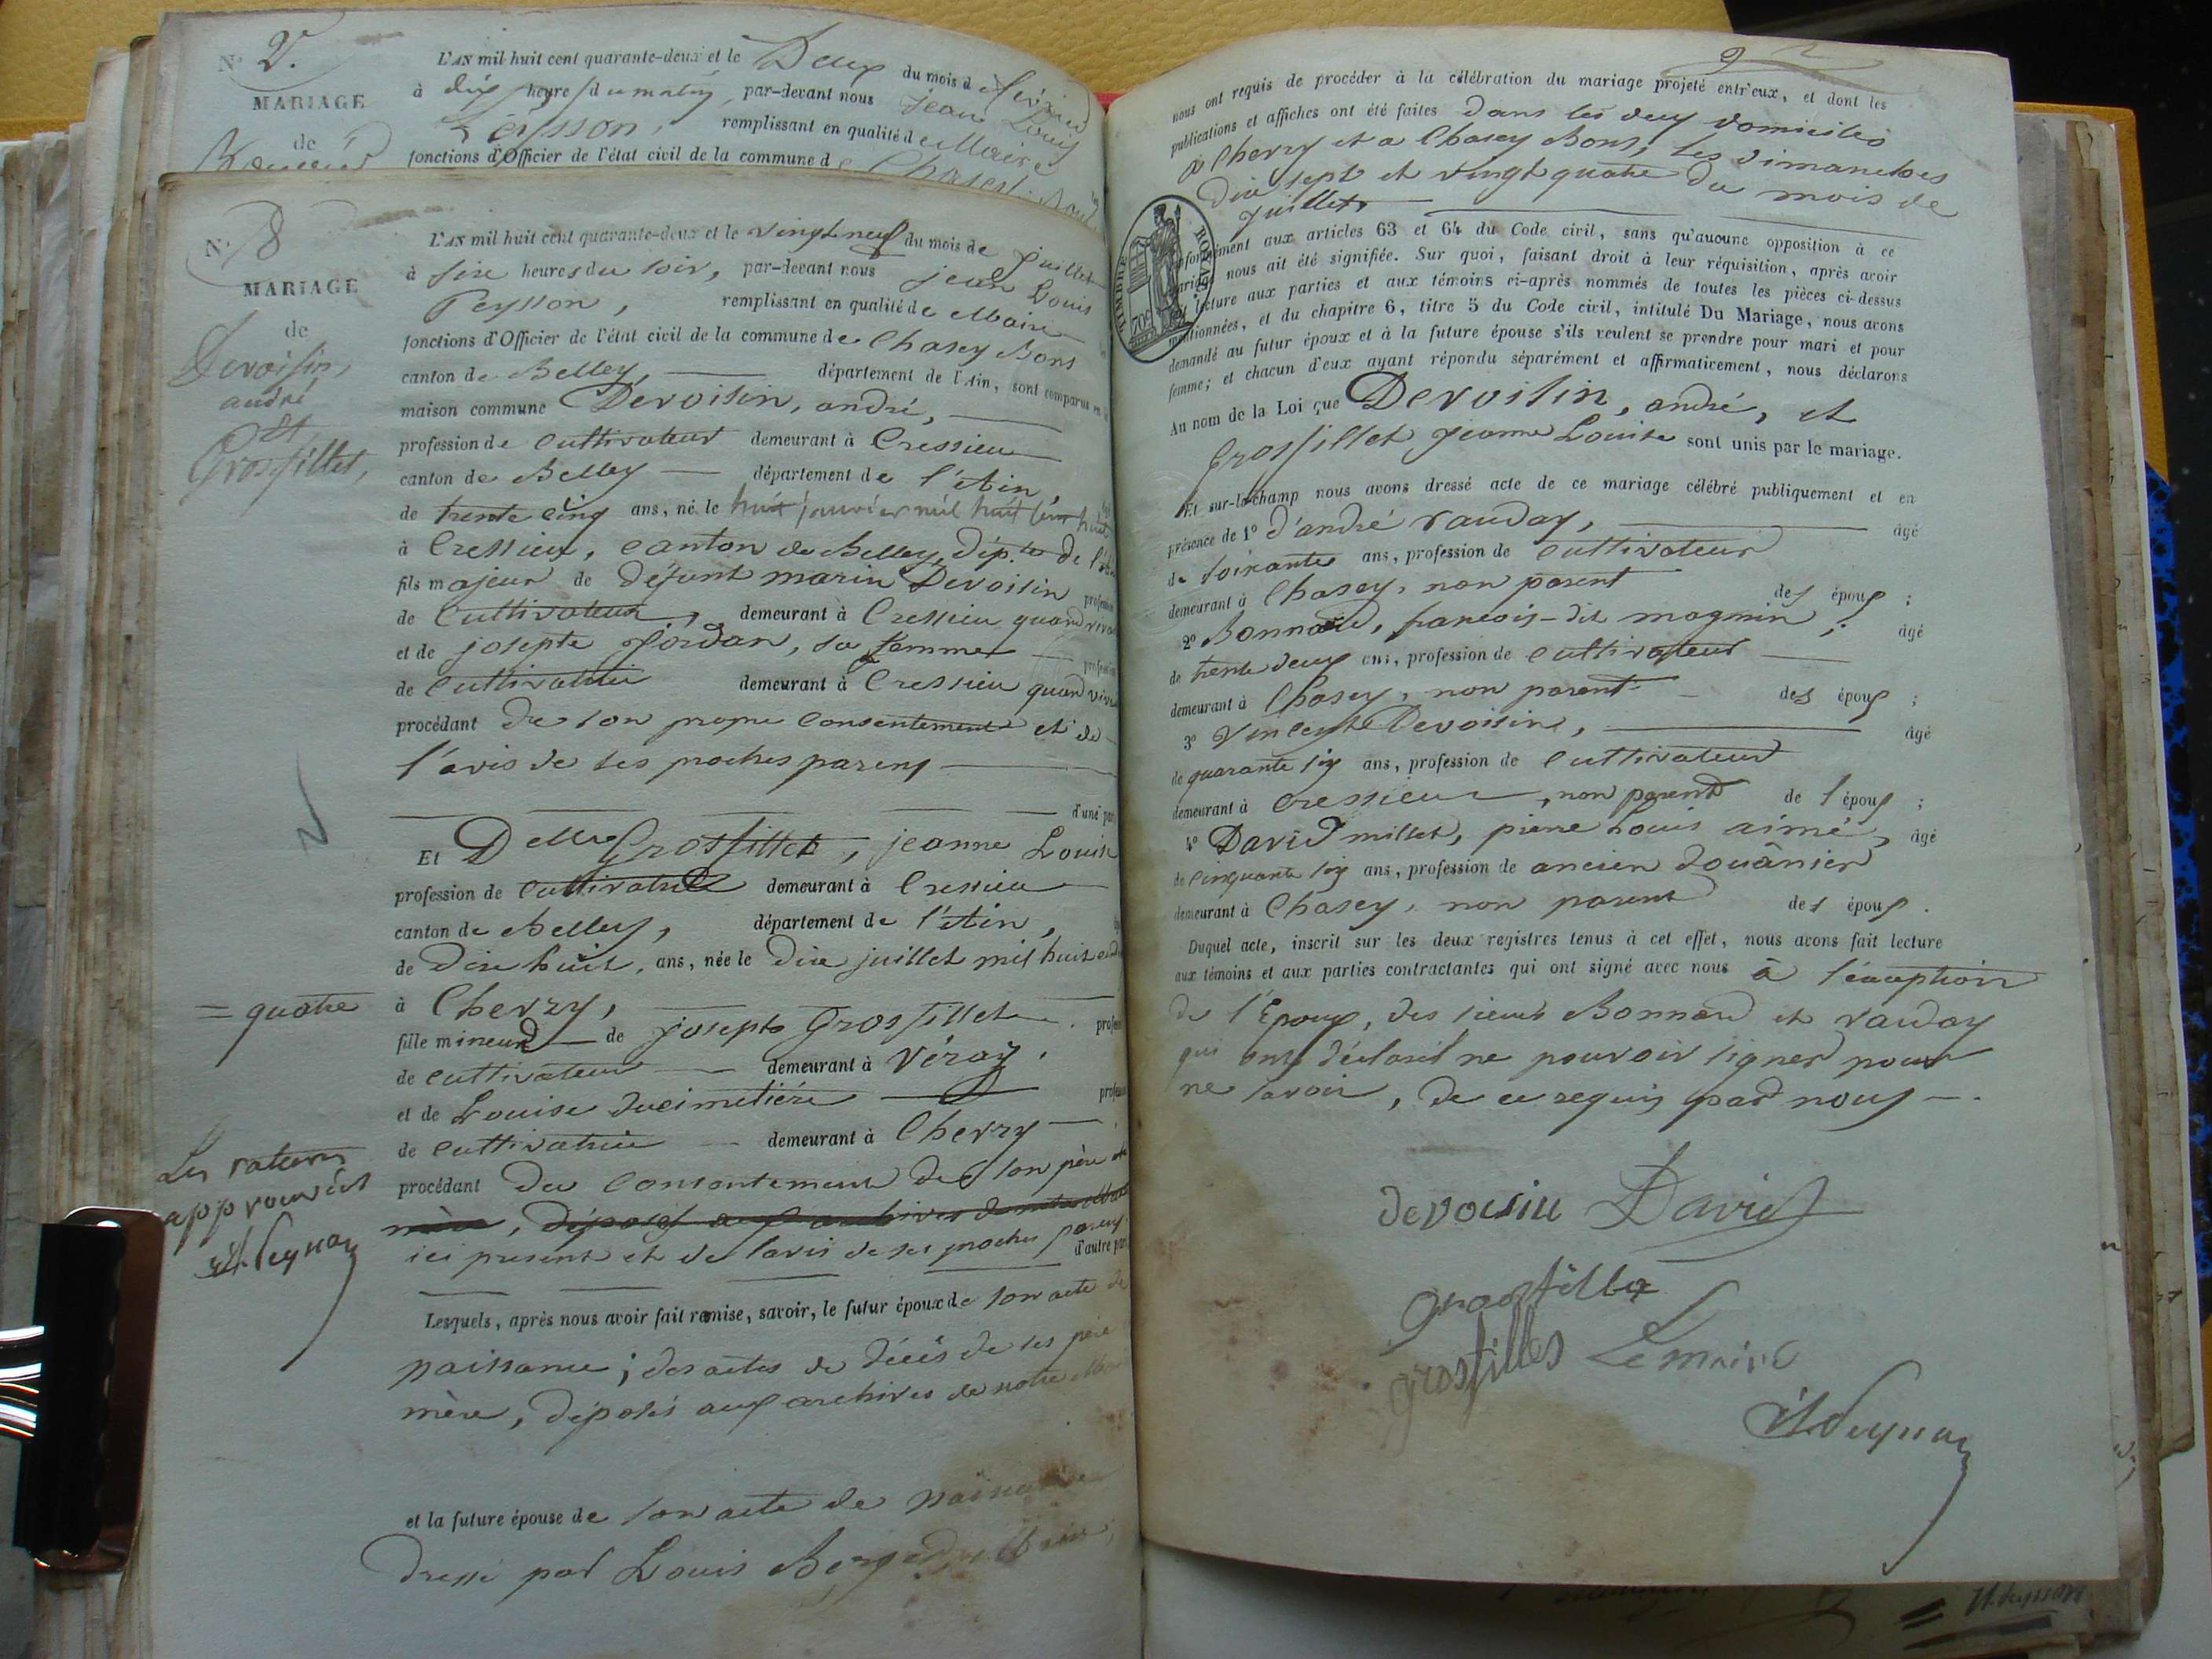 N° 2.
MARIAGE
de
L'AN mil huit cent quarante-deux et le Deux du mois de
à dix heures du matin, par-devant nous Jean Louis
remplissant en qualité de Maire
fonctions d'Officier de l'état civil de la commune de Chasey
N° 8
MARIAGE
de
Devoisin,
andré
et
Grosfillet,
L'AN mil huit cent quarante-deux et le vingt neuf du mois de juillet
à sixe heures du soir, par-devant nous jean Louis
Peysson, remplissant en qualité de Maire
fonctions d'Officier de l'état civil de la commune de Chasey Bons
canton de Belley, département de l'Ain, sont comparus en
maison commune Devoisin, andré,
profession de Cultivateur demeurant à Cressieu
canton de Belley département de l'Ain,
de trente cinq ans, né le huit janvier mil huit cent huit
à Cressieu, canton de Belley, dép.te de l'Ain
fils majeur de défunt marin Devoisin profession
de Cultivateur, demeurant à Cressieu quand vivait
et de josepte Jordan, sa femme profession
de Cultivatrice demeurant à Cressieu quand vivait
procédant de son propre Consentement et de
l'avis de ses proches parens
d'une part
Et Delle Grosfillet, jeanne Louise
profession de Cultivatrice demeurant à Cressieu
canton de Belley, département de l'Ain,
de dixe huit, ans, née le dixe juillet mil huit cent
= quatre
à Cherzy,
fille mineure de josepte Grosfillet profession
de cultivateur demeurant à Véray,
et de Louise ducimetière profession
de Cultivatrice demeurant à Cherzy
Les ratures
approuvées
procédant du Consentement de son père et
mère, déposés aux archives de notre
ici present et de l'avis de ses proches parens
d'autre part
Lesquels, après nous avoir fait remise, savoir, le futur époux de son acte de
naissance; des actes de décès de ses père
mère, déposés aux archives de notre
et la future épouse de son acte de naissance
dressé par Louis
nous ont requis de procéder à la célébration du mariage projeté entr'eux, et dont les
publications et affiches ont été faites dans les deux domiciles
à Cherzy et a Chasey Bons, les dimanches
dix sept et vingt quatre du mois de
juillet
TIMBRE ROYAL
70c
conformément aux articles 63 et 64 du Code civil, sans qu'aucune opposition à ce
mariage nous ait été signifiée. Sur quoi, faisant droit à leur réquisition, après avoir
lecture aux parties et aux témoins ci-après nommés de toutes les pièces ci-dessus
mentionnées, et du chapitre 6, titre 5 du Code civil, intitulé Du Mariage, nous avons
demandé au futur époux et à la future épouse s'ils veulent se prendre pour mari et pour
femme; et chacun d'eux ayant répondu séparément et affirmativement, nous déclarons
Au nom de la Loi que Devoisin, andré, et
Grosfillet jeanne Louise sont unis par le mariage.
Et sur-le-champ nous avons dressé acte de ce mariage célébré publiquement et en
présence de 1° d'andré vauday, âgé
de soixante ans, profession de Cultivateur
demeurant à Chasey, non parent des époux ;
2° Bonnard, francois-dit magnin, âgé
de trente deux ans, profession de Cultivateur
demeurant à Chasey, non parent des époux ;
3° Vincent Devoisin, âgé
de quarante six ans, profession de Cultivateur
demeurant à Cressieu, non parent de l'époux ;
4° David millet, pierre Louis aimé, âgé
de cinquante six ans, profession de ancien douânier
demeurant à Chasey, non parent des époux.
Duquel acte, inscrit sur les deux registres tenus à cet effet, nous avons fait lecture
aux témoins et aux parties contractantes qui ont signé avec nous à l'éxception
de l'Epoux, des sieurs Bonnard et vauday
qui ont déclaré ne pouvoir signer pour
ne savoir, de ce requis par nous.
devoisin David
grosfillet
grosfilles Le maire